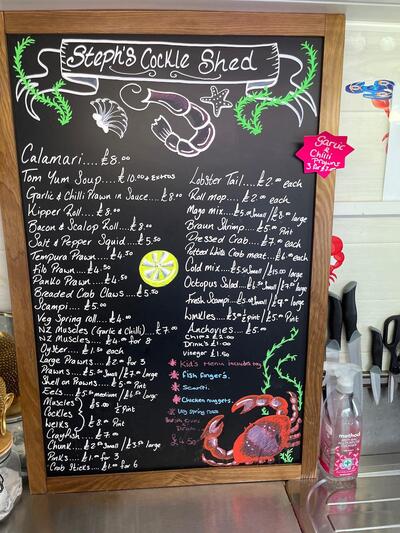 Steph's Cockle Shed
Garlic
&
Chilli
Prawns
Calamari.... £8.00
Tom Yum Soup.... £10.00 + Extras
Garlic & Chilli Prawn in Sauce...£8.00
Kipper Roll.... £8.00
Bacon & Scalop Roll.... £8.00
Salt & Pepper Squid.... £5.50
Tempura Prawn.... £4.50
Filo Prawn.... £4.50
Panko Prawn.... £4.50
Breaded Crab Claws... £5.50
Scampi.... £5.00
Veg Spring roll.... £4.00
NZ Muscles (Garlic & Chilli).... £7.00
NZ Muscles.... £4.00 for 8
Oyster.... £1.50 each
Large Prawns.... £2.00 for 3
Prawns... £5.00 Small / £7.00 large
Shell on Prawns.... £5.00 Pint
Eels.... £5.50 medium /
Muscles
Cockles
Welks
£5.00 ½ Pint
£8.00 Pint
Crayfish.... £7.00
Chunk.... Small / large
Pink's.... £1.00 for 3
Crab Sticks... £1.00 for 6
Lobster Tail.... £2.00 each
Roll mop.... £2.00 each
Mayo mix.... £5.00 Small / £8.00 large
Braun Shrimp.... £5.00 Pint
Dressed Crab.... £7.00 each
Potted White Crab meat.... £4.00 each
Cold mix.... £5.50 Small / £15.00 large
Octopus Salad... Small / large
Fresh Scampi... Small / large
Winkles.... £3.00 ½ pint / £5.00 Pint
Anchovies.... £5.00
Chips £2.00
Drinks £1.00
Vinegar £1.50
Kid's Menu includes toy
fish fingers.
Scampi.
Chicken nuggets.
Veg Spring rolls
£4.50
method